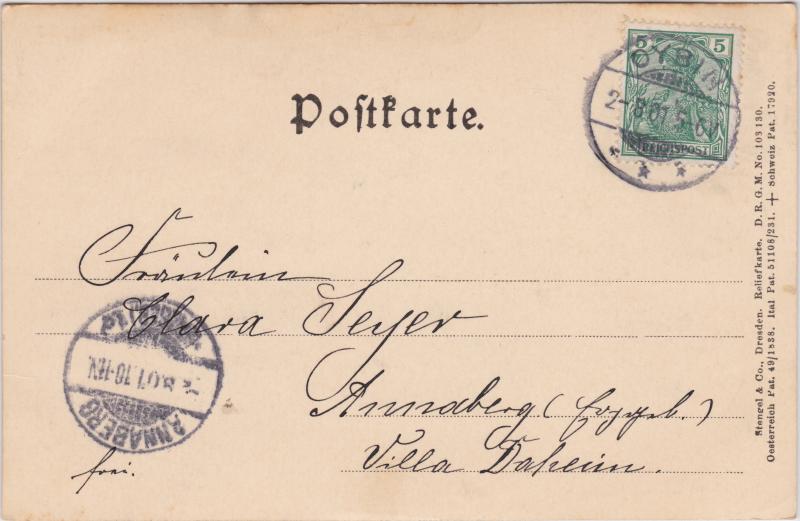 5 5
REICHSPOST
OYBIN
Postkarte.
Fräulein
Clara Seyer
Annaberg (Erzgeb.)
Villa Daheim.
frei.
ANNABERG
Stengel & Co., Dresden. Reliefkarte. D. R. G. M. No. 103 130.
Oesterreich Pat. 49/1838. Ital Pat. 51108/231. + Schweiz Pat. 17920.